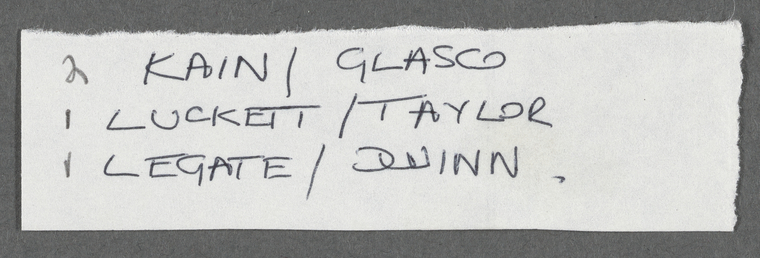 2 KAIN / GLASCO
1 LUCKETT / TAYLOR
1 LEGATE / QUINN .